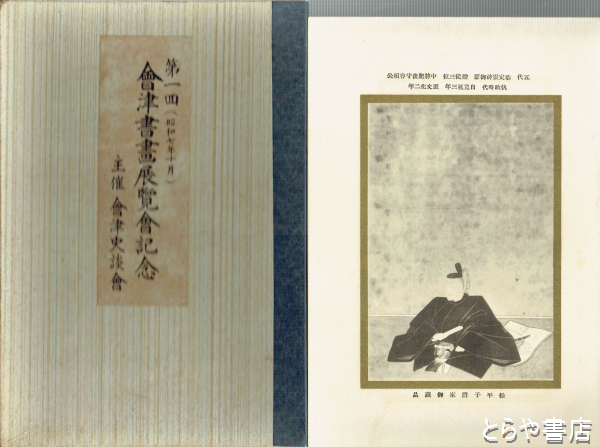 第一回（昭和七年十月）
會津書畫展覽會記念
主催 會津史談會
五代 恭定靈神御影 贈從三位 中將肥後守容頌公
執政時代 自寬延三年 至文化二年
松平子爵家御藏品
とらや書店